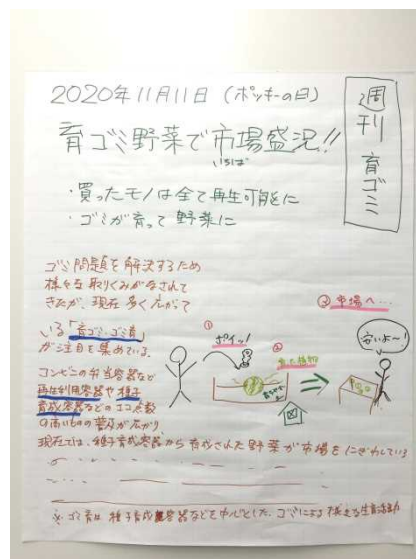 2020年11月11日（ポッキーの日）
週刊 育ゴミ
育ゴミ野菜で市場盛況!!
いちば
・買ったモノは全て再生可能に
・ゴミが育って野菜に
ゴミ問題を解決するため
様々な取りくみがなされて
きたが、現在 多く広がって
いる「育ゴミ・ゴミ育」
が注目を集めている。
コンビニの弁当容器など
再生利用容器や種子
育成容器などのエコ点数
の高いものの普及が広がり
現在では、種子育成容器から育成された野菜が市場をにぎわしている
①
ポイッ!
②
育った植物
③市場へ…
安いよ〜!
※ゴミ育は種子育成容器などを中心とした、ゴミによる